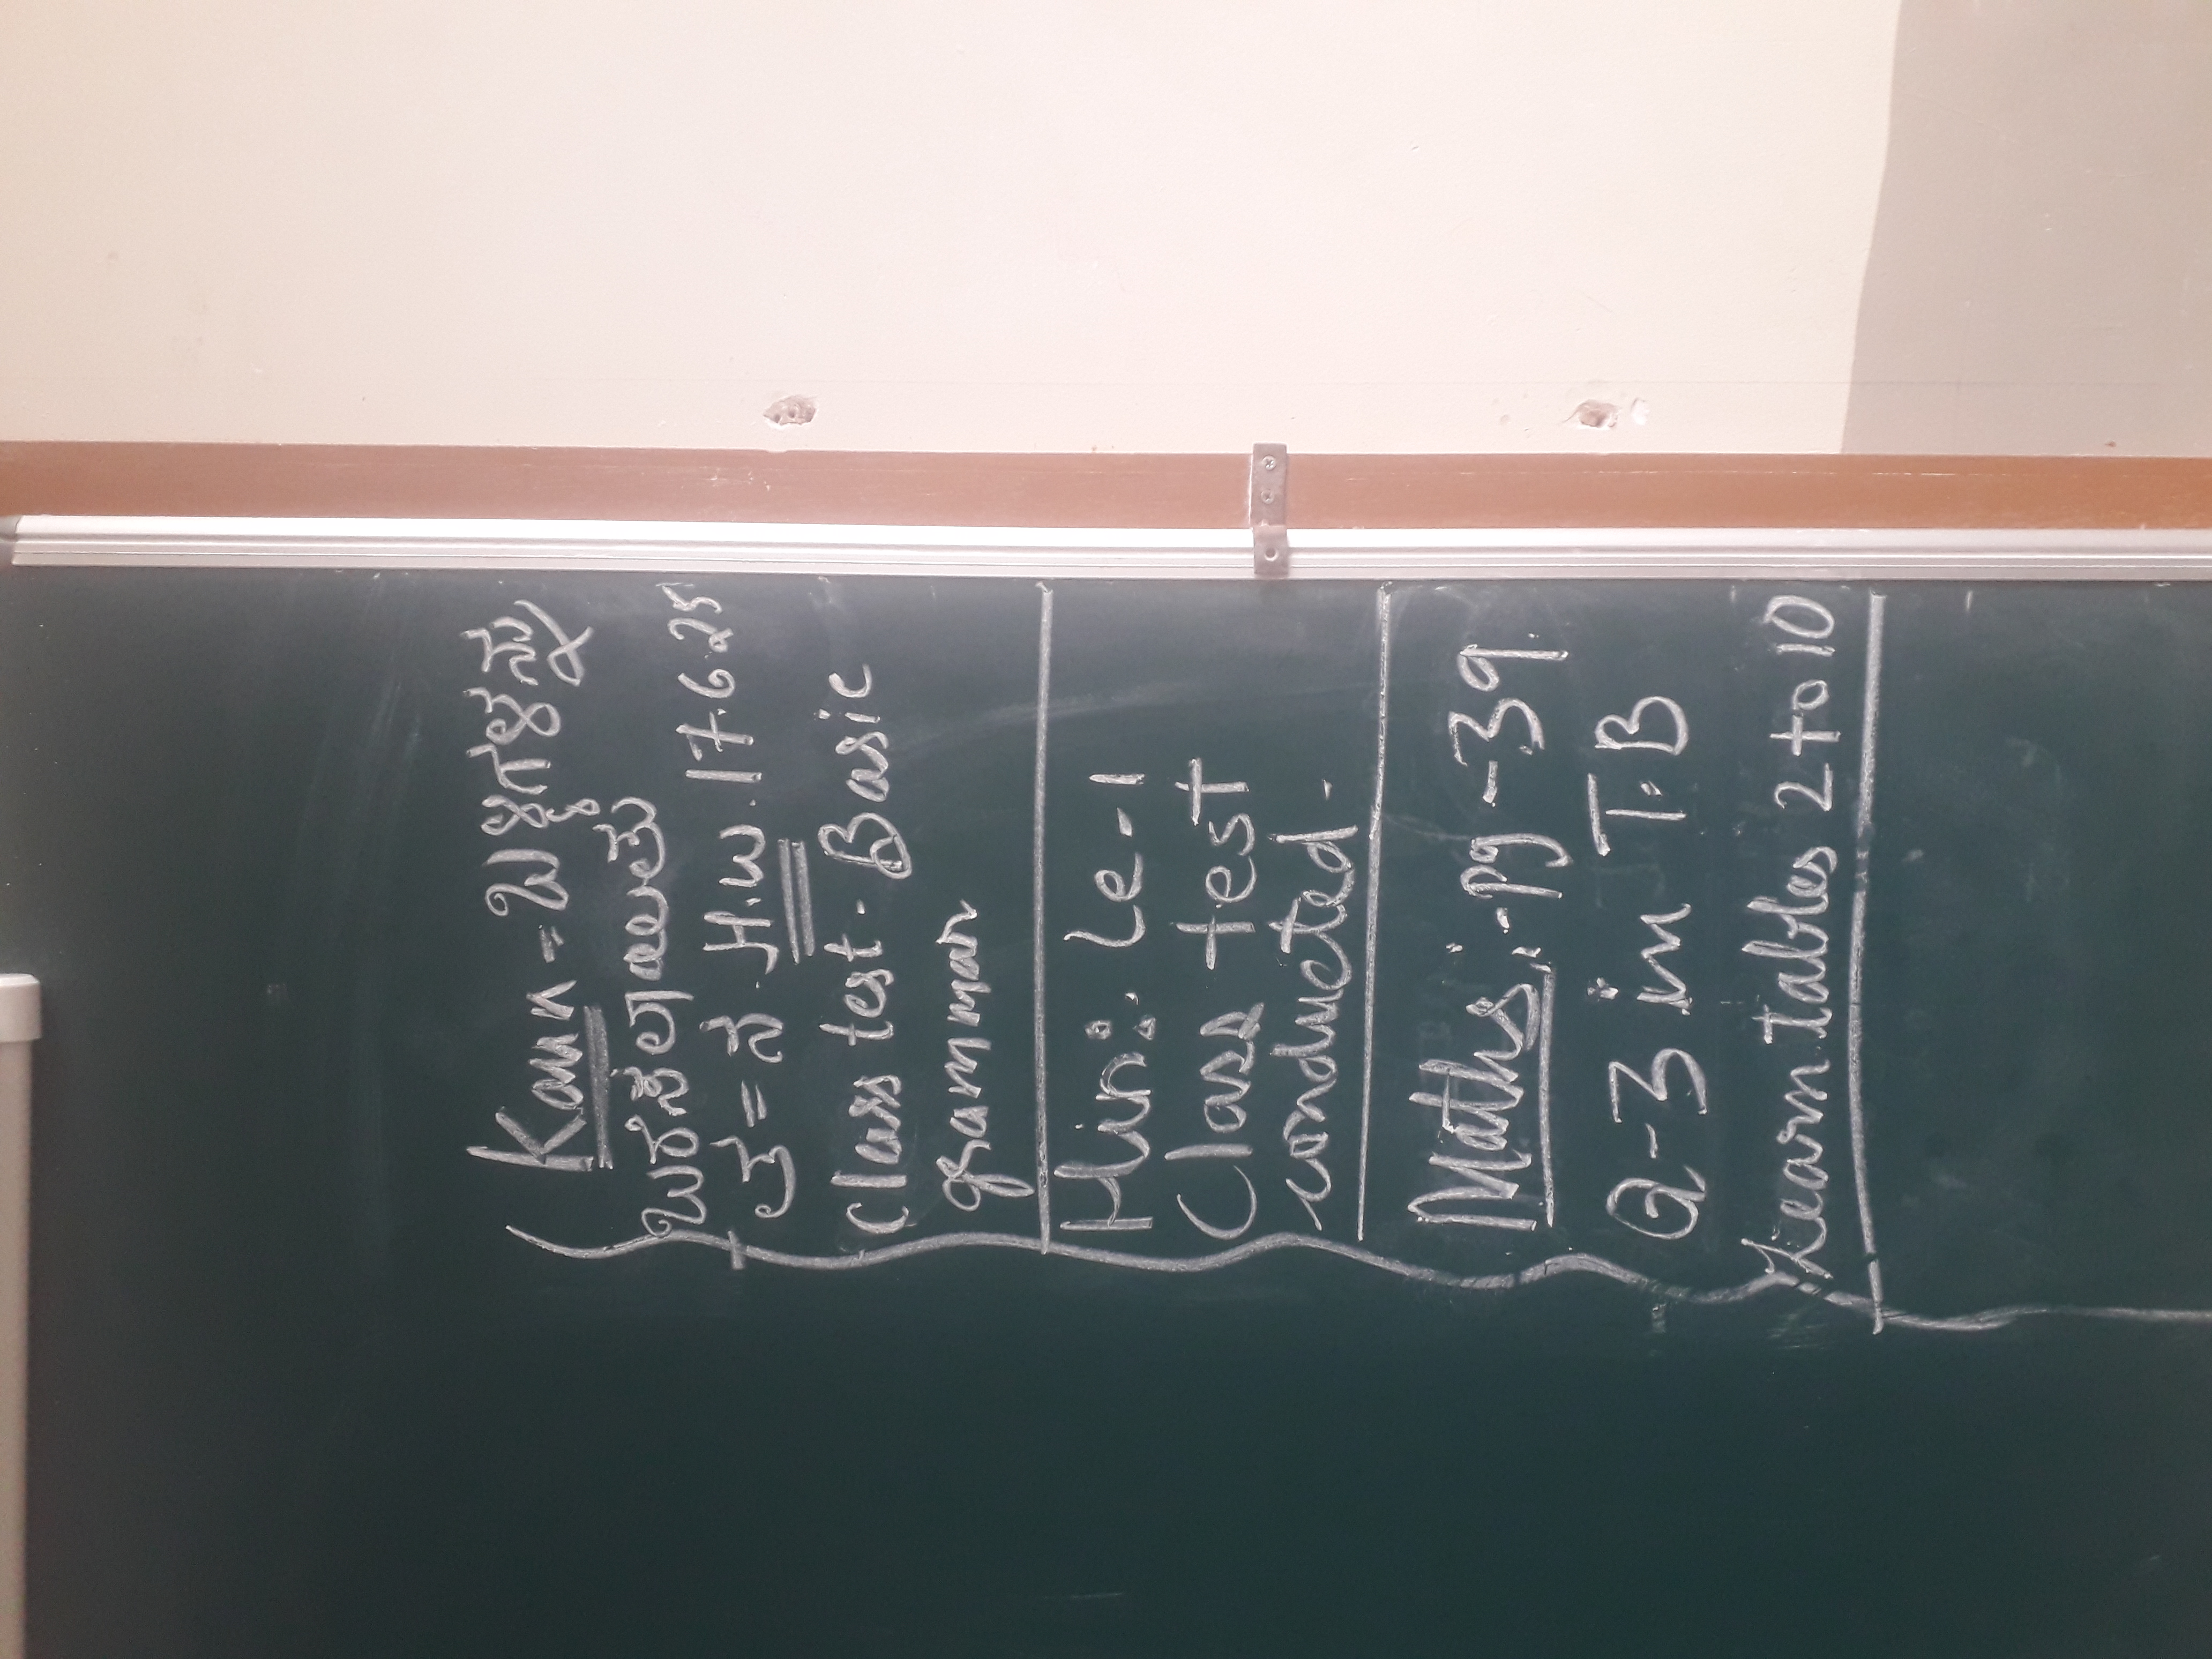 Kan = ಖಳ್ಳಗಳನ್ನು
ಬರೆಸಲಾಯಿತು
ತ = ನ. H.W. 17.6.25
Class test - Basic
grammar
Hin: Le-1
Class test
conducted.
Maths: - pg - 39.
Q-3 in T.B
Learn tables 2 to 10